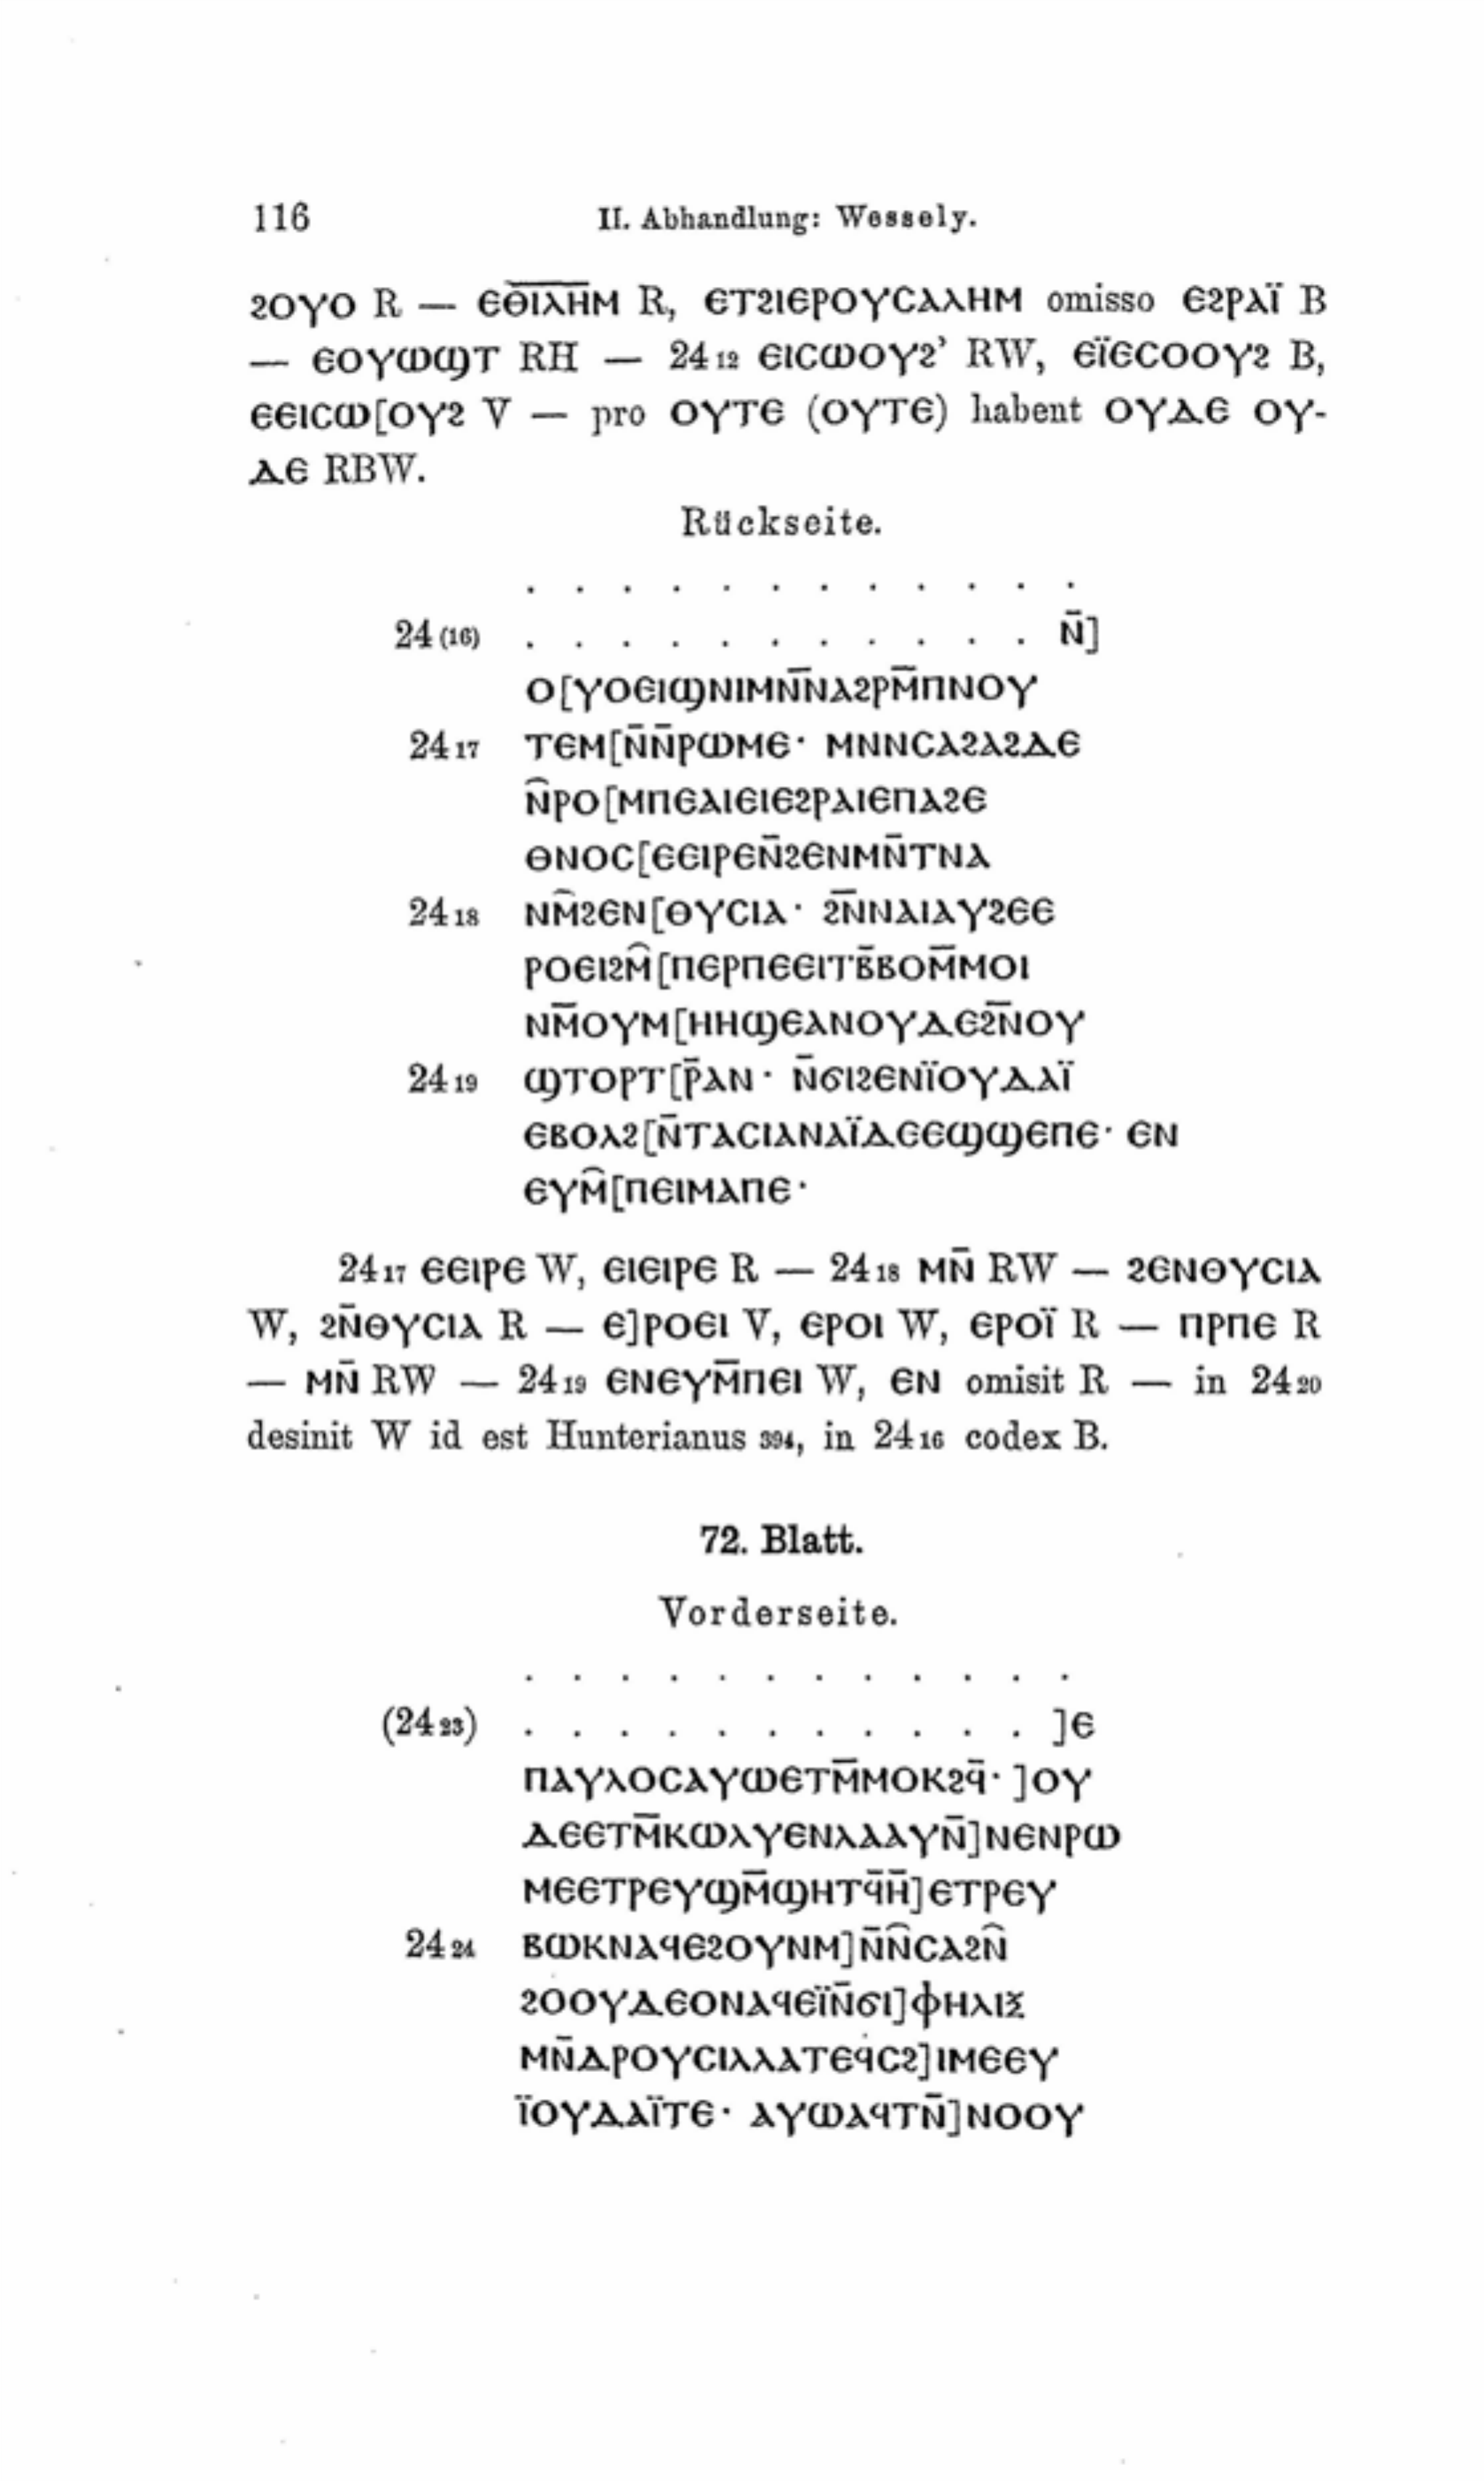 116 II. Abhandlung: Wessely.
ϩⲟⲩⲟ R — ⲉⲑ̅ⲓ̅ⲗ̅ⲏ̅ⲙ R, ⲉⲧϩⲓⲉⲣⲟⲩⲥⲁⲗⲏⲙ omisso ⲉϩⲣⲁⲓ̈ B
— ⲉⲟⲩⲱϣⲧ RH — 24 12 ⲉⲓⲥⲱⲟⲩϩ’ RW, ⲉⲓ̈ⲉⲥⲟⲟⲩϩ B,
ⲉⲉⲓⲥⲱ[ⲟⲩϩ V — pro ⲟⲩⲧⲉ (ⲟⲩⲧⲉ) habent ⲟⲩⲇⲉ ⲟⲩ-
ⲇⲉ RBW.
Rückseite.
. . . . . . . . . . . .
24 (16) . . . . . . . . . . . ⲛ̄]
ⲟ[ⲩⲟⲉⲓϣⲛⲓⲙⲛⲛ̅ⲛⲁϩⲣⲙ̅ⲡⲛⲟⲩ
24 17 ⲧⲉⲙ[ⲛ̄ⲛ̄ⲣⲱⲙⲉ· ⲙⲛⲛⲥⲁϩⲁϩⲇⲉ
ⲛ̑ⲣⲟ[ⲙⲡⲉⲁⲓⲉⲓⲉϩⲣⲁⲓⲉⲡⲁϩⲉ
ⲑⲛⲟⲥ[ⲉⲉⲓⲣⲉⲛ̄ϩⲉⲛⲙⲛ̄ⲧⲛⲁ
24 18 ⲛⲙ̑ϩⲉⲛ[ⲑⲩⲥⲓⲁ· ϩⲛ̅ⲛⲁⲓⲁⲩϩⲉⲉ
ⲣⲟⲉⲓϩⲙ̑[ⲡⲉⲣⲡⲉⲉⲓⲧⲃ̄ⲃⲟⲙ̅ⲙⲟⲓ
ⲛⲙ̅ⲟⲩⲙ[ⲏⲏϣⲉⲁⲛⲟⲩⲇⲉϩⲛ̅ⲟⲩ
24 19 ϣⲧⲟⲣⲧ[ⲣ̄ⲁⲛ· ⲛ̄ϭⲓϩⲉⲛⲓ̈ⲟⲩⲇⲁⲓ̈
ⲉⲃⲟⲗϩ[ⲛ̄ⲧⲁⲥⲓⲁⲛⲁⲓ̈ⲇⲉⲉϣϣⲉⲡⲉ· ⲉⲛ
ⲉⲩⲙ̑[ⲡⲉⲓⲙⲁⲡⲉ·
24 17 ⲉⲉⲓⲣⲉ W, ⲉⲓⲉⲓⲣⲉ R — 24 18 ⲙⲛ̄ RW — ϩⲉⲛⲑⲩⲥⲓⲁ
W, ϩⲛ̄ⲑⲩⲥⲓⲁ R — ⲉ]ⲣⲟⲉⲓ V, ⲉⲣⲟⲓ W, ⲉⲣⲟⲓ̈ R — ⲡⲣⲡⲉ R
— ⲙⲛ̄ RW — 24 19 ⲉⲛⲉⲩⲙ̅ⲡⲉⲓ W, ⲉⲛ omisit R — in 24 20
desinit W id est Hunterianus 394, in 24 16 codex B.
72. Blatt.
Vorderseite.
. . . . . . . . . . . .
(24 23) . . . . . . . . . . . ]ⲉ
ⲡⲁⲩⲗⲟⲥⲁⲩⲱⲉⲧⲙ̅ⲙⲟⲕϩϥ̄· ]ⲟⲩ
ⲇⲉⲉⲧⲙ̅ⲕⲱⲗⲩⲉⲛⲗⲁⲁⲩⲛ̄]ⲛⲉⲛⲣⲱ
ⲙⲉⲉⲧⲣⲉⲩϣⲙ̅ϣⲏⲧϥ̄ⲏ̄]ⲉⲧⲣⲉⲩ
24 24 ⲃⲱⲕⲛⲁϥⲉϩⲟⲩⲛⲙ]ⲛ̄ⲛ̑ⲥⲁϩⲛ̑
ϩⲟⲟⲩⲇⲉⲟⲛⲁϥⲉⲓ̈ⲛ̄ϭⲓ]ⲫⲏⲗⲓⲝ
ⲙⲛ̄ⲇⲣⲟⲩⲥⲓⲗⲗⲁⲧⲉϥⲥϩ]ⲓⲙⲉⲉⲩ
ⲓ̈ⲟⲩⲇⲁⲓ̈ⲧⲉ· ⲁⲩⲱⲁϥⲧⲛ̄]ⲛⲟⲟⲩ